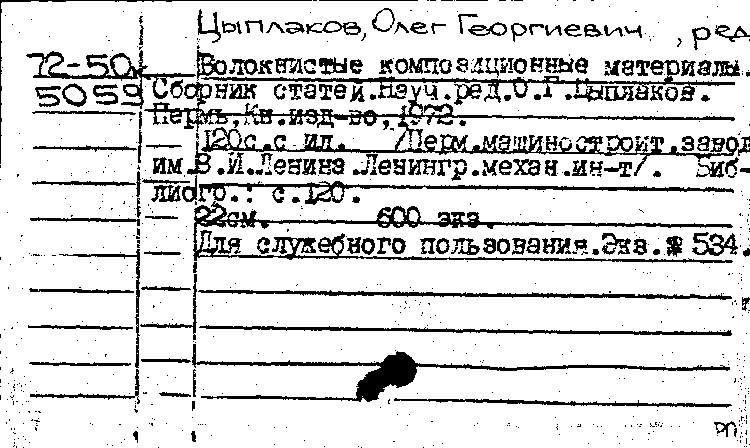 Цыплаков, Олег Георгиевич, ред
72-50 Волокнистые композиционные материалы.
5059 Сборник статей.Науч.ред.О.Г.Цыплаков.
Пермь,Кн.изд-во,1972.
120с.с ил. /Перм.машиностроит.завод
им.В.И.Ленина.Ленингр.механ.ин-т/. Биб-
лиогр.: с.120.
22см. 600 экз.
Для служебного пользования.Экз.№ 534.
РП